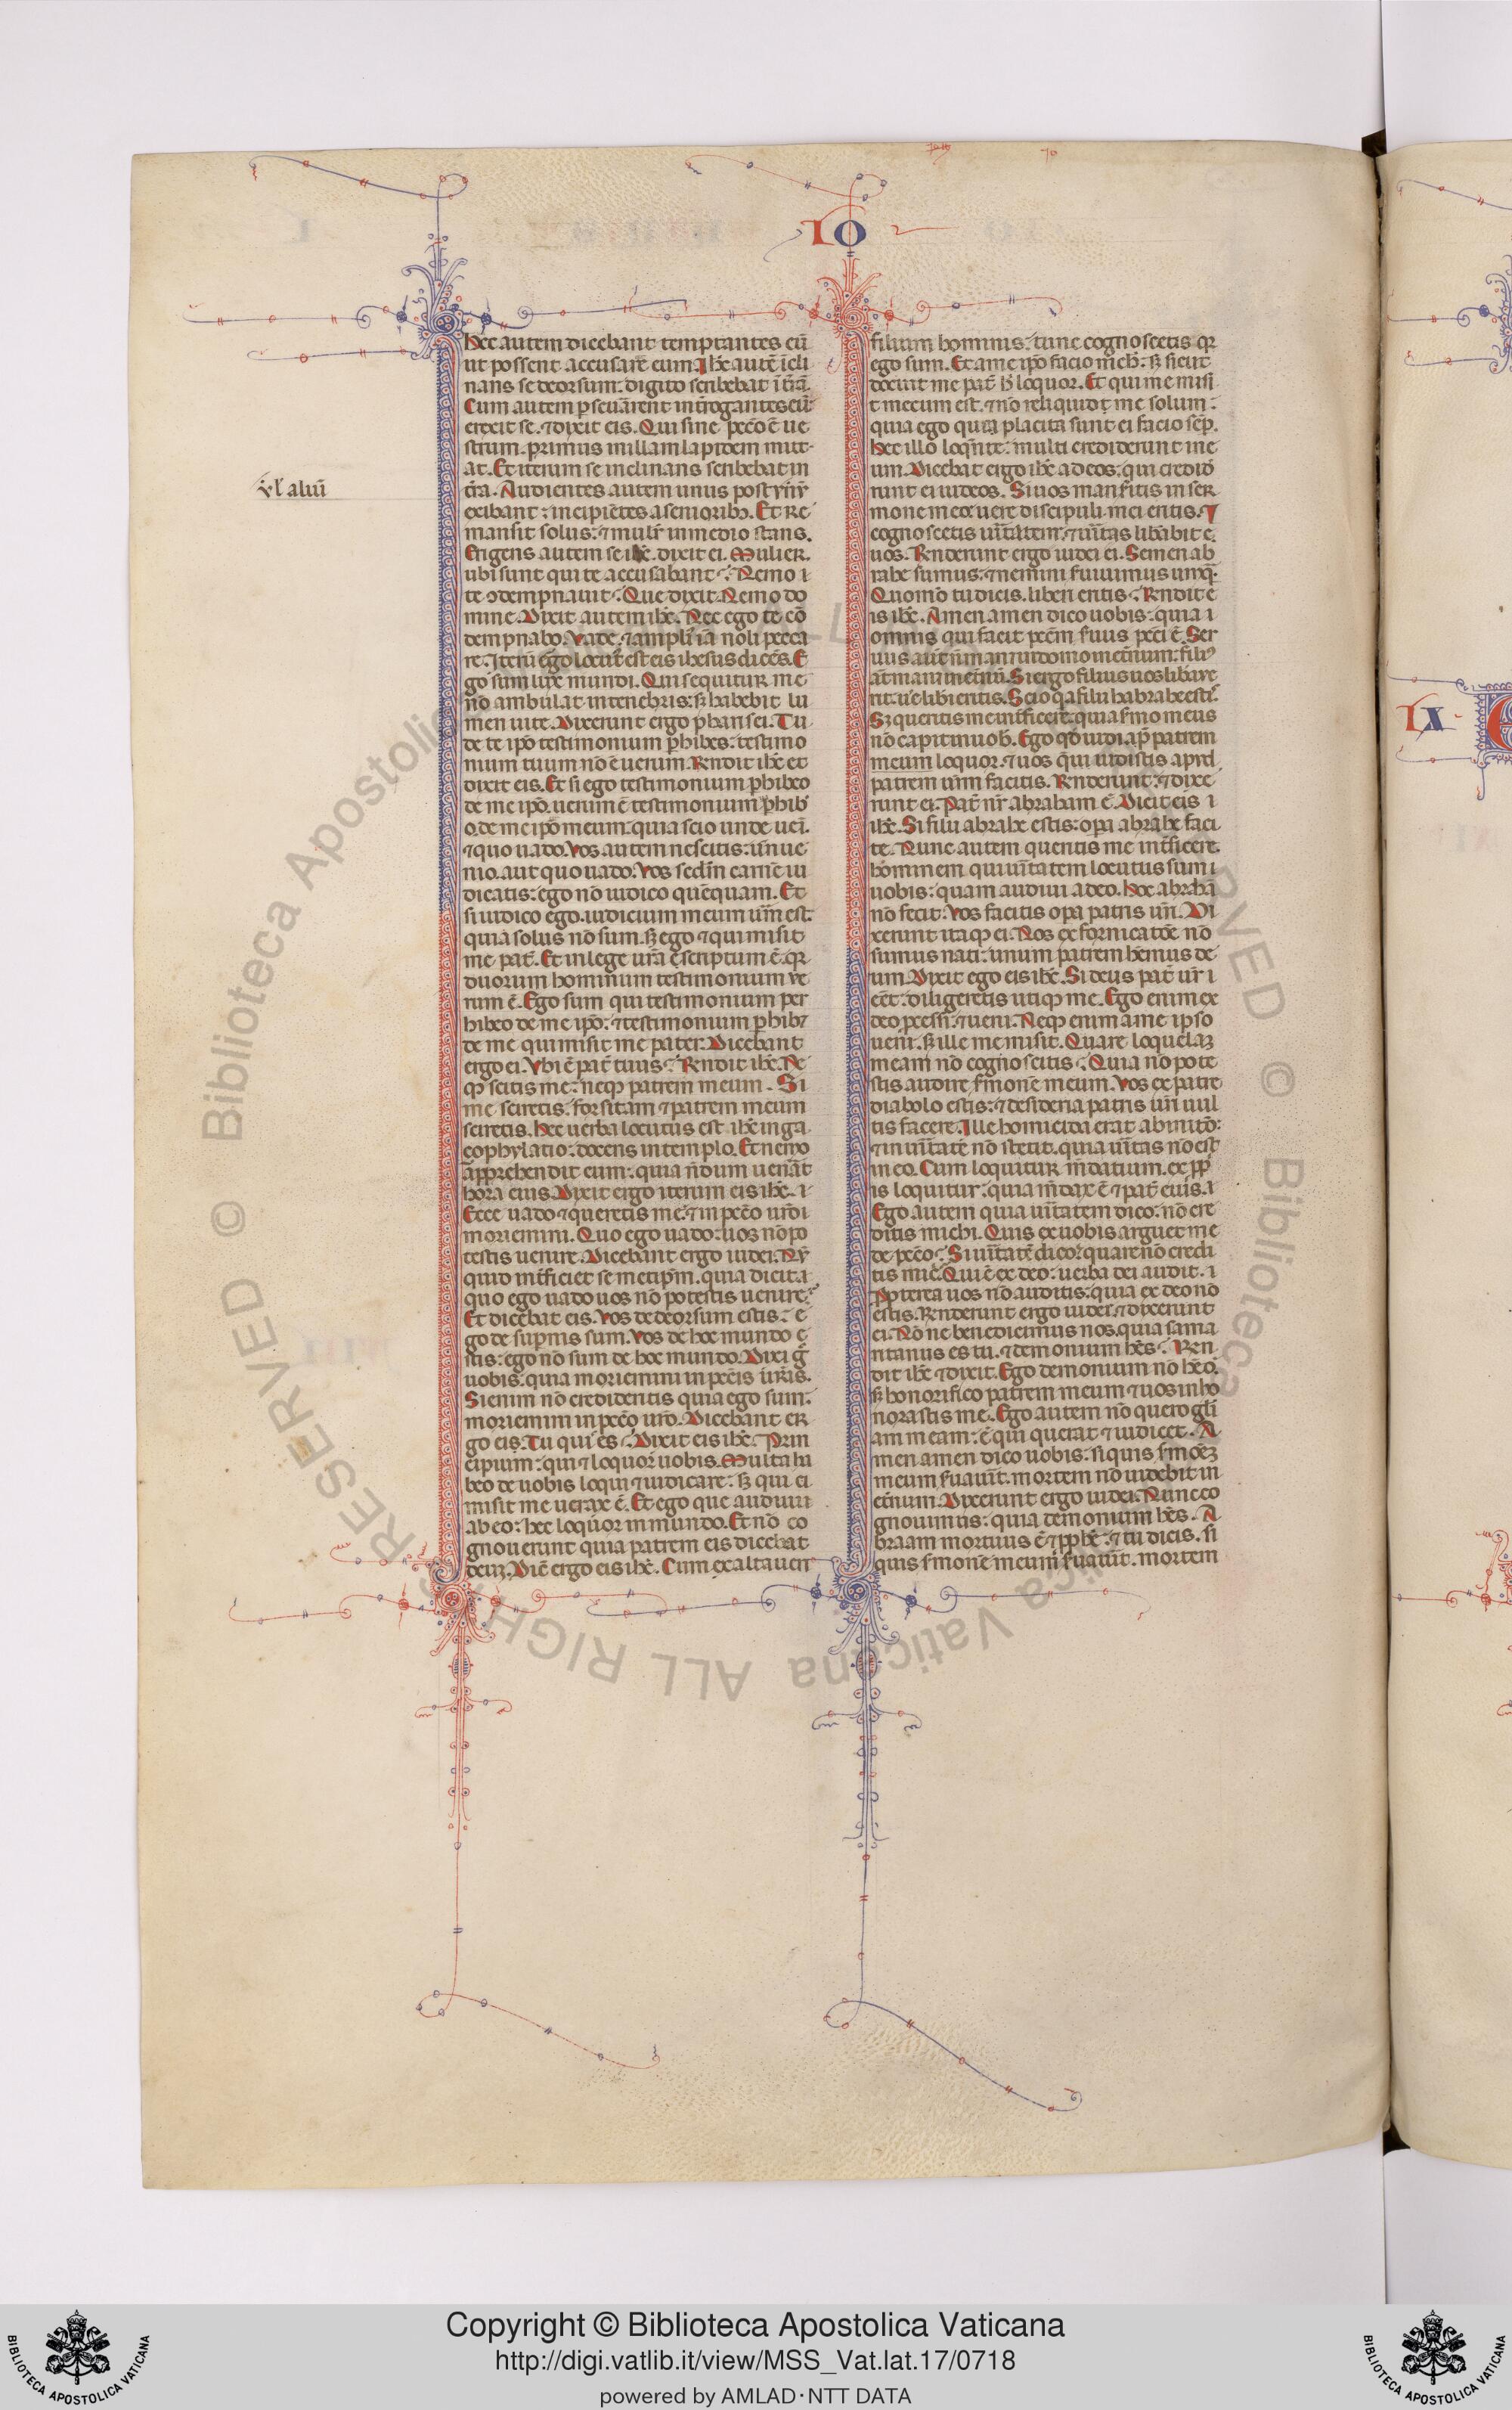 IO
Hec autem dicebant temptantes eū
ut possent accusare eum. Ihc̄ autē īcli
nans se deorsum: digito scribebat ī t̄rā.
Cum autem p̄seuārent int̄rogantes eū:
erexit se. ⁊ dixit eis. Qui sine pecc̄o ē ue
strum: primus in illam lapidem mitt
at. Et iterum se inclinans scribebat in
t̄ra. Audientes autem unus post
ūl aliū
exibant: incipiētes a seniorib᷒. Et re
mansit solus: ⁊ mulr̄ in medio stans.
Erigens autem se ihc̄. dixit ei. Mulier.
ubi sunt qui te accusabant? Nemo
te ↄdempnauit? Que dixit. Nemo do
mine. Dixit autem ihc̄. Nec ego te cō
dempnabo. Vade. ⁊ ampli᷒ iā noli pecca
re. Iterū ergo locut᷒ est eis ihesus dicēs. E
go sum lux mundi. Qui sequitur me
nō ambulat in tenebris: sꝫ habebit lu
men uite. Dixerunt ergo pharisei. Tu
de te ip̄o testimonium ꝑhibes: testimo
nium tuum nō ē uerum. Rn̄dit ihc̄ et
dixit eis. Et si ego testimonium ꝑhibeo
de me ip̄o. uerum ē testimonium
meum: quia scio unde ueī.
⁊ quo uado. Vos autem nescitis: un̄ ue
nio. aut quo uado. Vos sed'm carnē iu
dicatis: ego nō iudico quēquam. Et
si iudico ego. iudicium meum uīm est:
quia solus nō sum. sꝫ ego ⁊ qui misit
me pat̄. Et in lege ur̄a scriptum ē. qꝛ
duorum hominum testimonium ue
rum ē. Ego sum qui testimonium per
hibeo de me ip̄o: ⁊ testimonium ꝑhib₃
de me qui misit me pater. Dicebant
ergo ei. Vbi ē pat̄ tuus? Rn̄dit ihc̄. Ne
qꝫ scitis me: neqꝫ patrem meum. Si
me sciretis: forsitam ⁊ patrem meum
sciretis. Hec uerba locutus est ihc̄ in ga
çophylatio: docens in templo. Et nemo
apprehendit eum: quia n̄dum uenāt
hora eius. Dixit ergo iterum eis ihc̄.
Ecce uado ⁊ queretis me: ⁊ in pecc̄o ur̄o
moriemini. Quo ego uado: uos nō po
testis uenire. Dicebant ergo iudei. Nū
quid int̄ficiet se metip̄m. quia dicit.
quo ego uado uos nō potestis uenire?
Et dicebat eis. Vos de deorsum estis: e
go de supernis sum. Vos de hoc mundo e
stis: ego nō sum de hoc mundo. Dixi ḡ
uobis. quia moriemini in pecc̄is ur̄is.
Si enim nō credideritis quia ego sum:
moriemini in pecc̄o ur̄o. Dicebant er
go eis. Tu qui es? Dixit eis ihc̄. Prin
cipium: qui ⁊ loquor uobis. Multa ha
beo de uobis loqui ⁊ iudicare: sꝫ qui
misit me uerax ē. Et ego que audiui
ab eo: hec loquor in mundo. Et nō co
gnouerunt quia patrem eis dicebat
deuꝫ. Dix̄ ergo eis ihc̄. Cum exaltauerit
filium hominis: tunc cognoscetis qꝛ
ego sum. Et a me ip̄o facio nich̄: sꝫ sicut
docuit me pat̄ h̄ loquor. Et qui me misi
t mecum est. ⁊ nō reliquid me solum:
quia ego que placita sunt ei facio semp̄.
Hec illo loqn̄te: multi crediderunt in e
um. Dicebat ergo ihc̄ ad eos: qui credid̄
runt ei iudeos. Si uos manseritis in ser
mone meo: uere discipuli mei eritis.
cognoscetis uīttatem: ⁊ uītas libabit
uos. Rn̄derunt ergo iudei ei. Semen ab
rahe sumus: ⁊ nemini seruiuimus unqꝫ.
Quomō tu dicis. liberi eritis? Rn̄dit e
is ihc̄. Amen amen dico uobis: quia
omnis qui facit pecc̄m suus pecc̄i ē. Ser
uus aut̄ n̄ manet in domo in et̄num: fili᷒
aūt manet in et̄nū. Si ergo filius uos libaue
rit: ue᷒ libi eritis. Scio qa filii habrahe estis.
Sꝫ queritis me int̄ficere: quia s̄mo meus
nō capit in uob̄. Ego qd̄ uidi ap̄ patrem
meum loquor. ⁊ uos que uidistis apud
patrem ur̄m facitis. Rn̄derunt: ⁊ dixe
runt ei. Pat̄ nr̄ abraham ē. Dicit eis
ihc̄. Si filii abrahe estis: opa abrahe faci
te. Nunc autem queritis me int̄ficere:
hominem qui uītatem locutus sum
uobis: quam audiui a deo. Hoc abrahā
nō fecit: Vos facitis opa patris ur̄i. Di
xerunt itaqꝫ ei. Nos ex fornicatōe nō
sumus nati: unum patrem hēmus de
um. Dixit ergo eis ihc̄. Si deus pat̄ ur̄
eēt: diligeretis utiqꝫ me. Ego enim ex
deo pcessi: ⁊ ueni. Neqꝫ enim a me ipso
ueni. sꝫ ille me misit. Quare loquelaꝫ
meam nō cognoscitis? Quia nō pote
stis audire s̄monē meum. Vos ex patre
diabolo estis: ⁊ desideria patris ur̄i uul
tis facere. Ille homicida erat ab initio:
⁊ in uītate nō stetit. quia uītas nō est
in eo. Cum loquitur mēdatium. ex pp
is loquitur: quia mēdax ē ⁊ pat̄ eius.
Ego autem quia uītatem dico: nō cre
ditis michi. Quis ex uobis arguet me
de pecc̄o? Si uītatē dico: quare nō credi
tis mic̄. Qui ē ex deo: uerba dei audit.
Ꝓpterea uos nō auditis: quia ex deo nō
estis. Rn̄derunt ergo iudei. ⁊ dixerunt
ei. Nōne bene dicimus nos. quia sama
ritanus es tu. ⁊ demonium hēs? Rn̄
dit ihc̄ ⁊ dixit. Ego demonium nō hēo.
sꝫ honorifico patrem meum ⁊ uos inho
norastis me. Ego autem nō quero gl̄i
am meam: ē qui querat ⁊ iudicet. A
men amen dico uobis: si quis s̄monēꝫ
meum s̄uauīt. mortem nō uidebit in
et̄num. Dixerunt ergo iudei. Nunc co
gnouimus: quia demonium hēs. A
braam mortuus ē ⁊ ꝓphē: ⁊ tu dicis. si
quis s̄monē meum s̄uauīt. mortem
IX
Copyright © Biblioteca Apostolica Vaticana
http://digi.vatlib.it/view/MSS_Vat.lat.17/0718
powered by AMLAD·NTT DATA
BIBLIOTECA APOSTOLICA VATICANA
BIBLIOTECA APOSTOLICA VATICANA